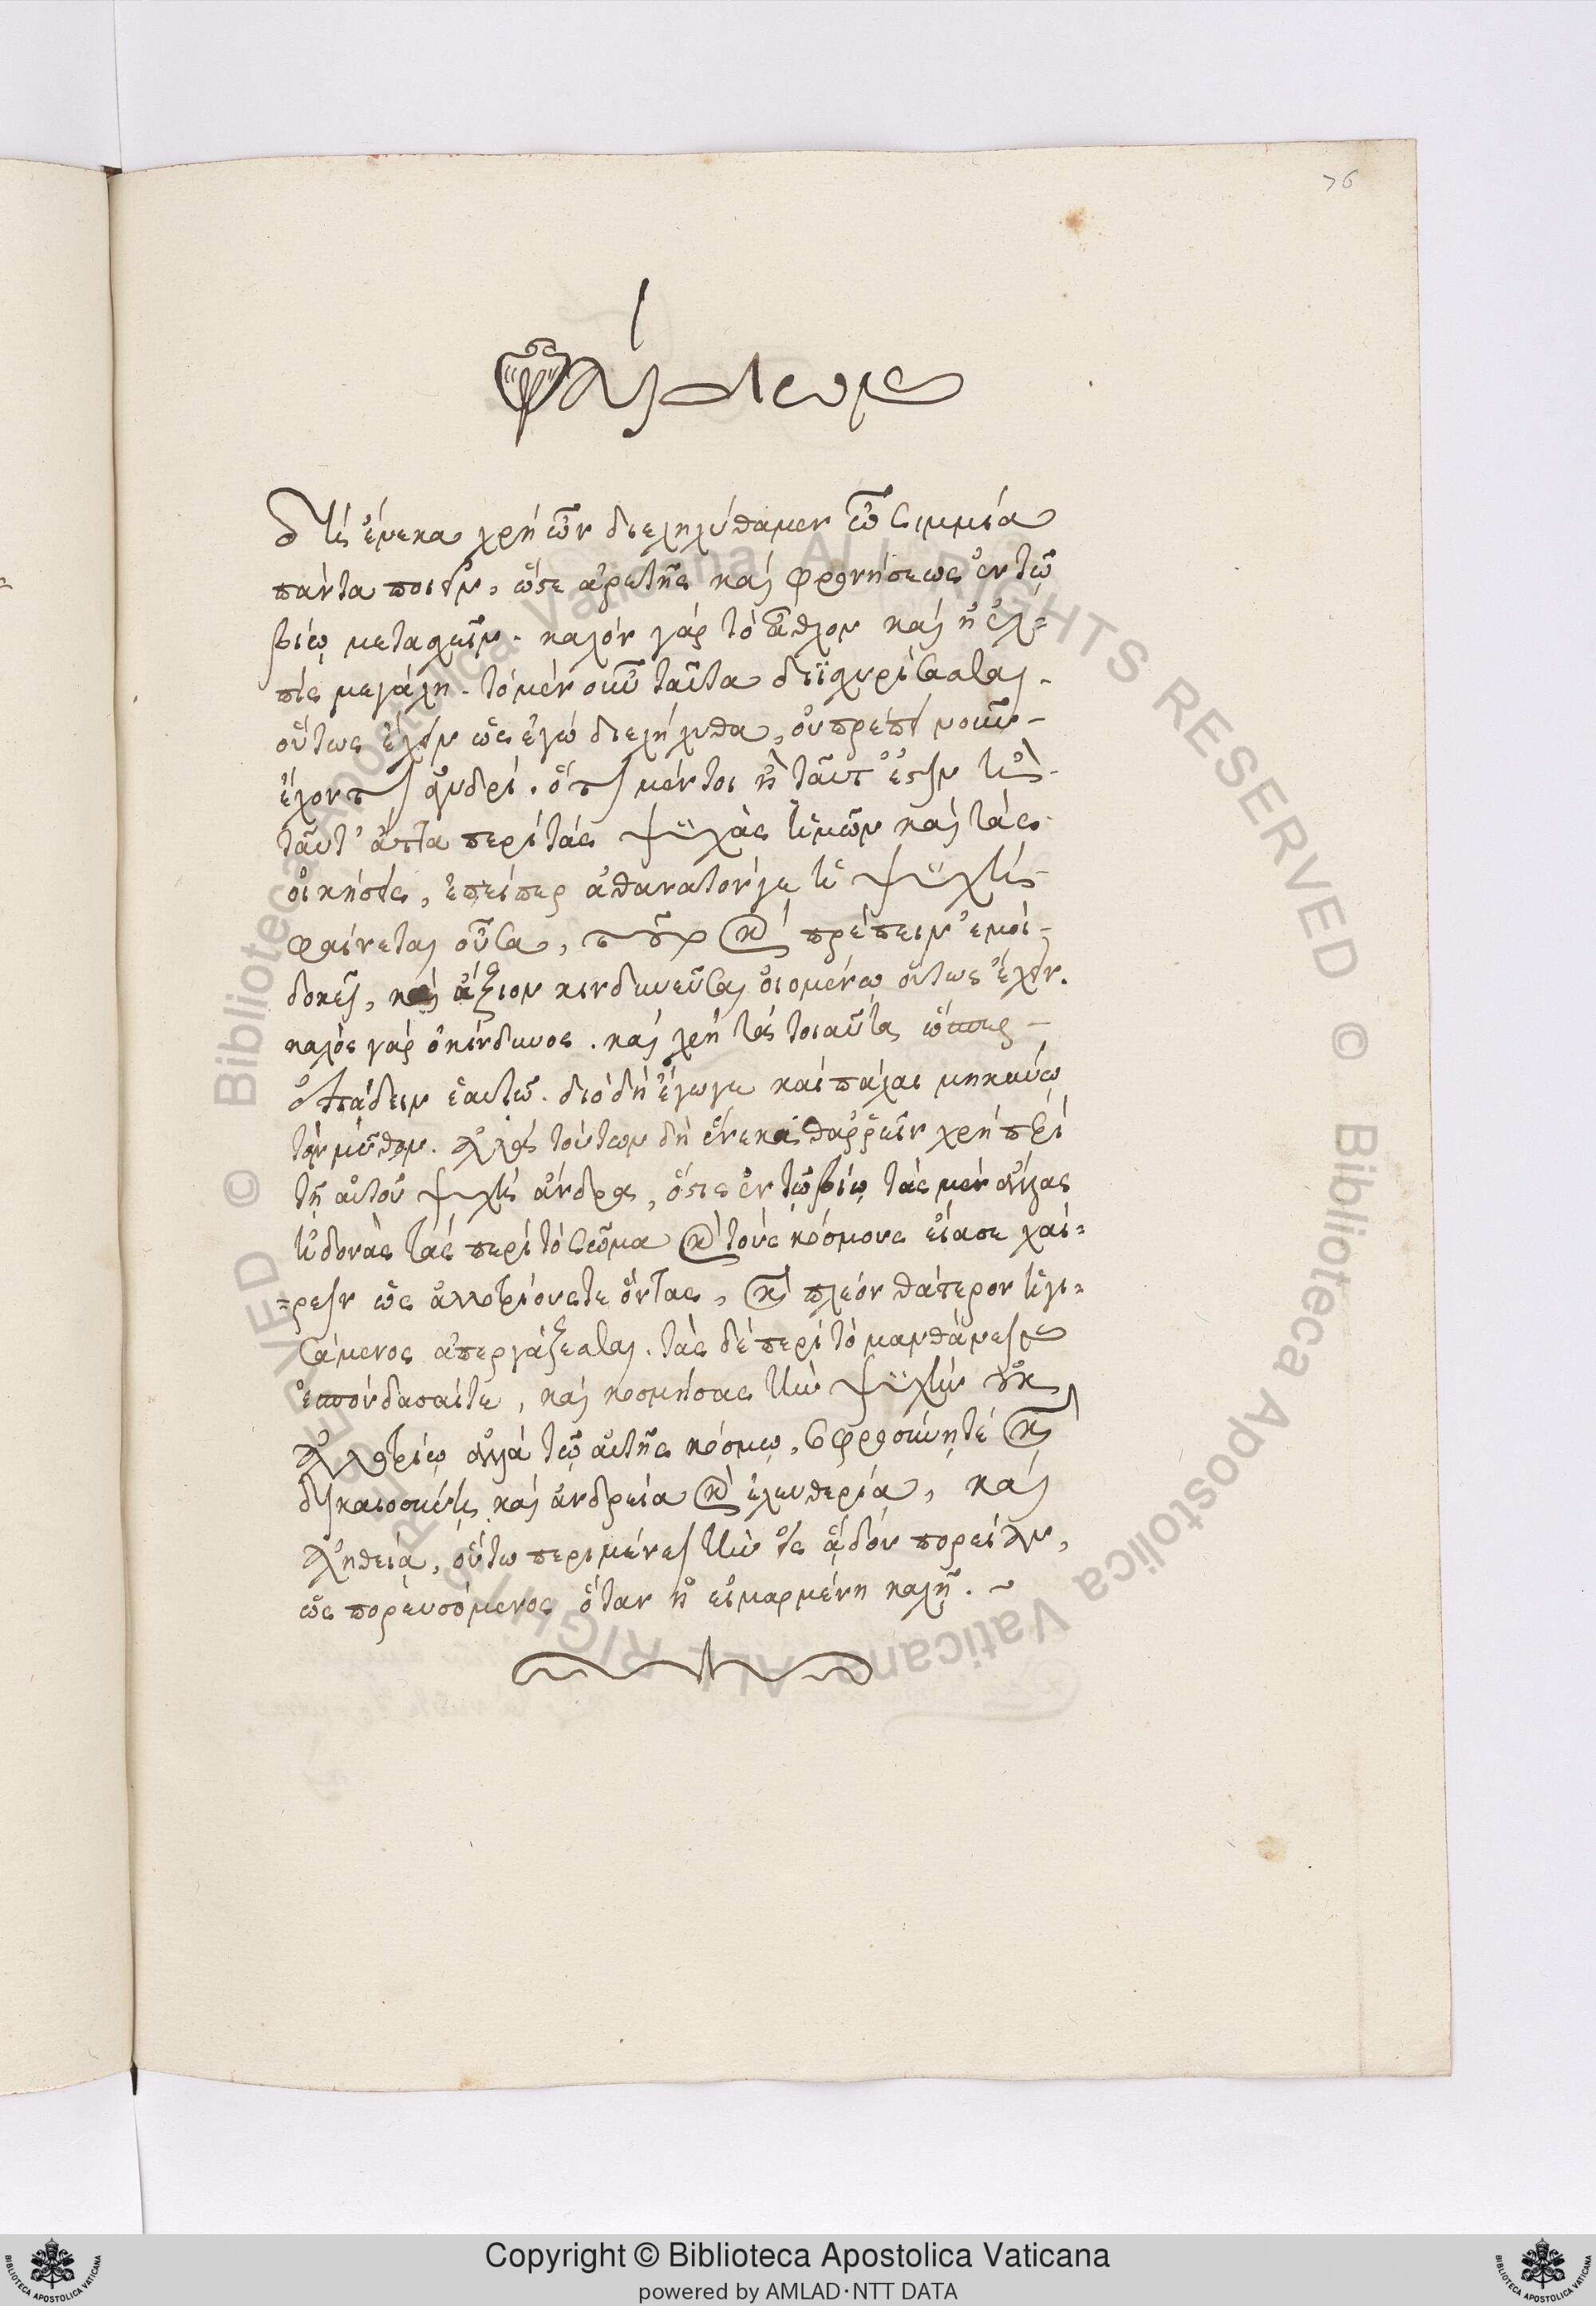 76
Φαίδων
Τούτων ἕνεκα χρὴ ὧν διεληλύθαμεν ὦ Σιμμία
πάντα ποιεῖν, ὥστε ἀρετῆς καὶ φρονήσεως ἐν τῷ
βίῳ μετασχεῖν. καλὸν γὰρ τὸ ἆθλον καὶ ἡ ἐλ=
πὶς μεγάλη. τὸ μὲν οὖν ταῦτα διϊσχυρίσασθαι.
οὕτως ἔχειν ὡς ἐγὼ διελήλυθα, οὐ πρέπει νοῦν
ἔχοντι ἀνδρί. ὅτι μέντοι ἢ ταῦτ' ἐστὶν ἢ
τοιαῦτ' ἄττα περὶ τὰς ψυχὰς ἡμῶν καὶ τὰς
οἰκήσεις, ἐπείπερ ἀθάνατόν γε ἡ ψυχὴ
φαίνεται οὖσα, τοῦτο καὶ πρέπειν ἐμοὶ
δοκεῖ, καὶ ἄξιον κινδυνεῦσαι οἰομένῳ οὕτως ἔχειν.
καλὸς γὰρ ὁ κίνδυνος. καὶ χρὴ τὰ τοιαῦτα ὥσπερ
ἐπᾴδειν ἑαυτῷ. διὸ δὴ ἔγωγε καὶ πάλαι μηκύνω
τὸν μῦθον. ἀλλὰ τούτων δὴ ἕνεκα θαῤῥεῖν χρὴ περὶ
τῇ αὑτοῦ ψυχῇ ἄνδρα, ὅστις ἐν τῷ βίῳ τὰς μὲν ἄλλας
ἡδονὰς τὰς περὶ τὸ σῶμα καὶ τοὺς κόσμους εἴασε χαί=
=ρειν ὡς ἀλλοτρίους τε ὄντας, καὶ πλέον θάτερον ἡγη=
σάμενος ἀπεργάζεσθαι. τὰς δὲ περὶ τὸ μανθάνειν
ἐσπούδασέ τε, καὶ κοσμήσας τὴν ψυχὴν οὐκ
ἀλλοτρίῳ ἀλλὰ τῷ αὑτῆς κόσμῳ, σωφροσύνῃ τε καὶ
δικαιοσύνῃ καὶ ἀνδρείᾳ καὶ ἐλευθερίᾳ, καὶ
ἀληθείᾳ, οὕτω περιμένει τὴν εἰς ᾅδου πορείαν,
ὡς πορευσόμενος ὅταν ἡ εἱμαρμένη καλῇ.
Copyright © Biblioteca Apostolica Vaticana
powered by AMLAD·NTT DATA